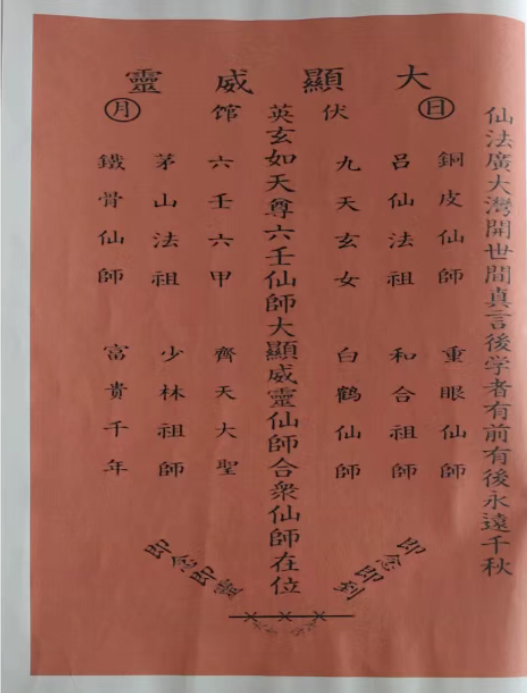 大顯威靈
仙法廣大灣開世間真言後学者有前有後永遠千秋
日
銅皮仙師 重眼仙師
呂仙法祖 和合祖師
伏
九天玄女 白鶴仙師
英玄如天尊六壬仙師大顯威靈仙師合衆仙師在位
馆
六壬六甲 齊天大聖
茅山法祖 少林祖師
月
鐵骨仙師 富貴千年
即念即到
即念即靈